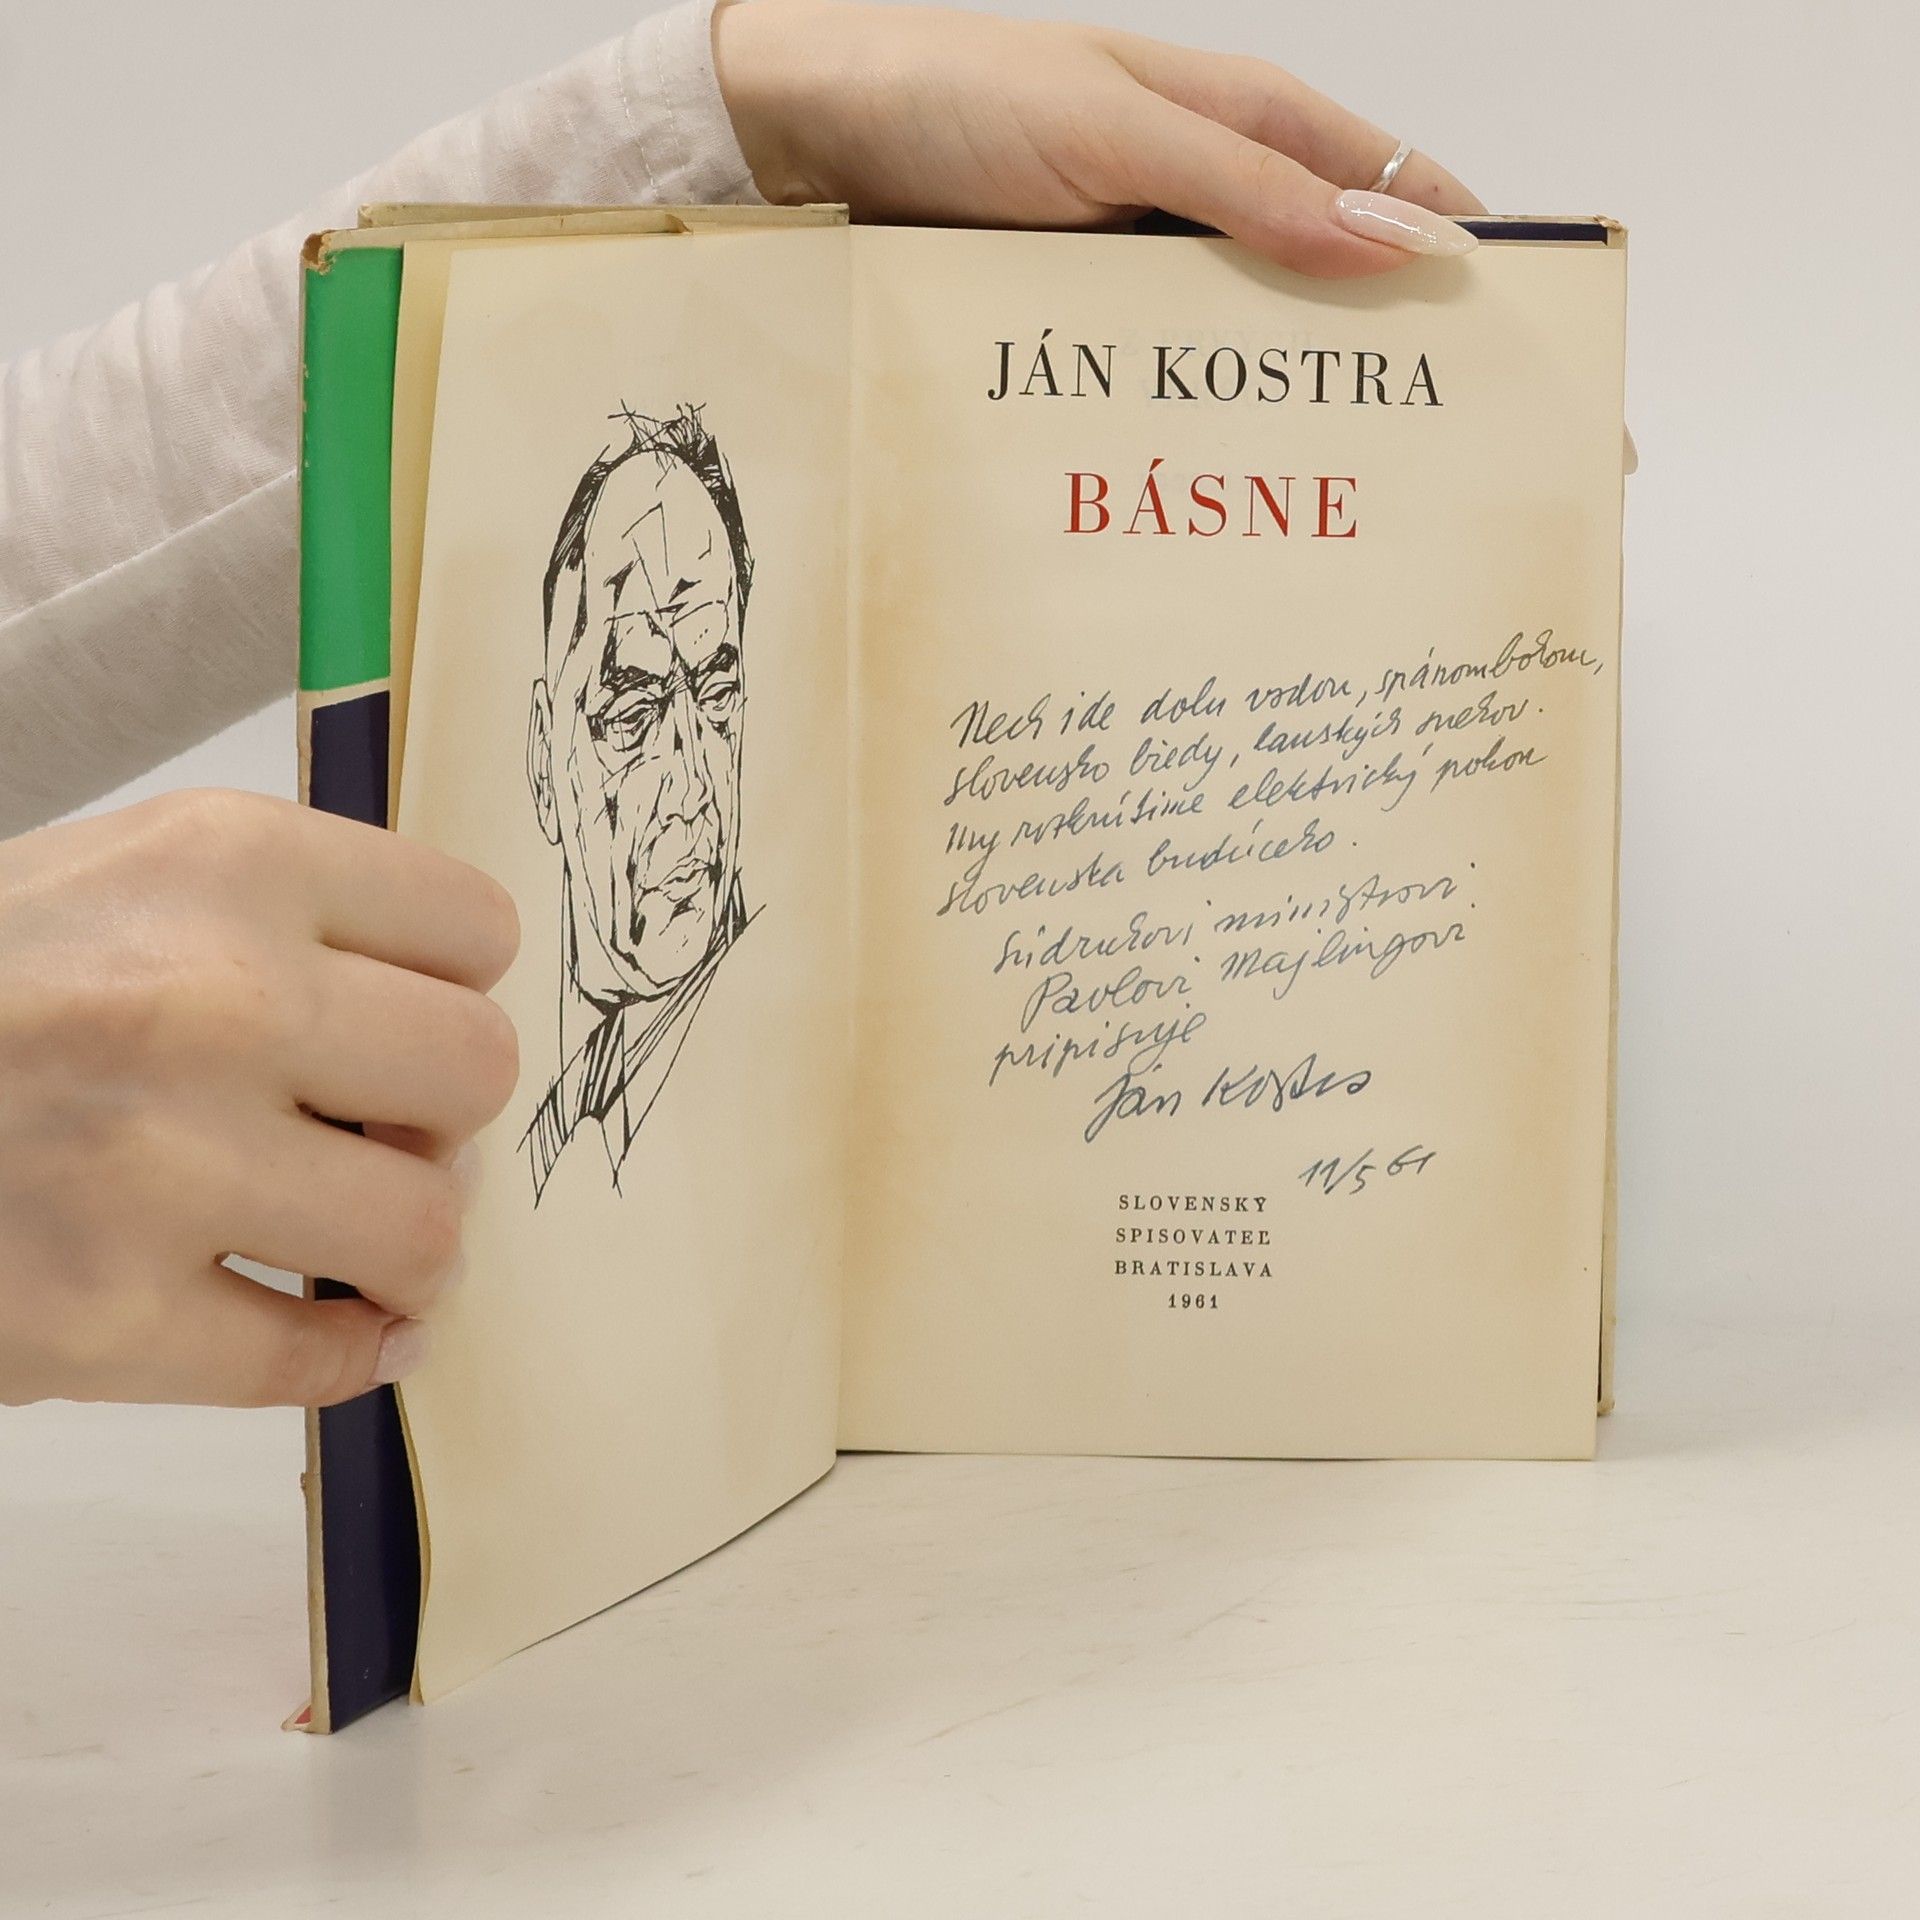 JÁN KOSTRA
BÁSNE
Nech ide dolu vodou, s pánombohom,
slovensko biedy, lauských snehov.
My rozkrútime elektrický pohon
slovenska budúceho.
Súdruhovi ministrovi
Pavlovi Majlingovi
pripisuje
Ján Kostra
11/5 61
SLOVENSKÝ
SPISOVATEĽ
BRATISLAVA
1961